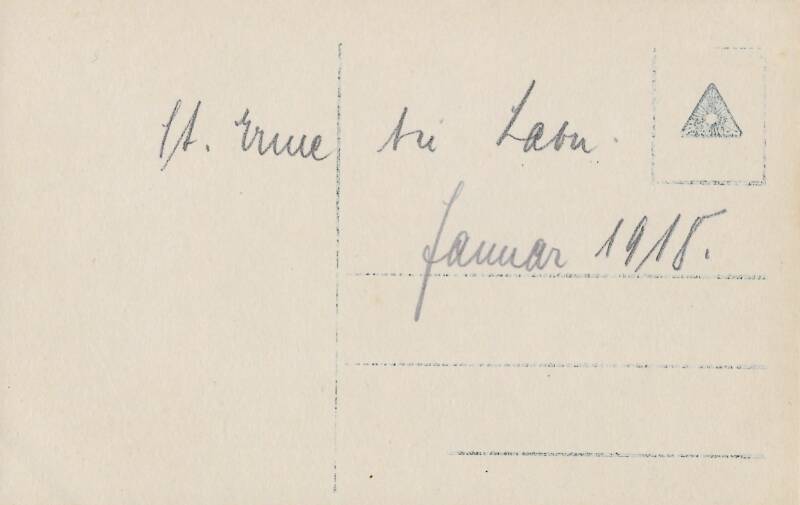 St. Erme bei Laon.
Januar 1918.